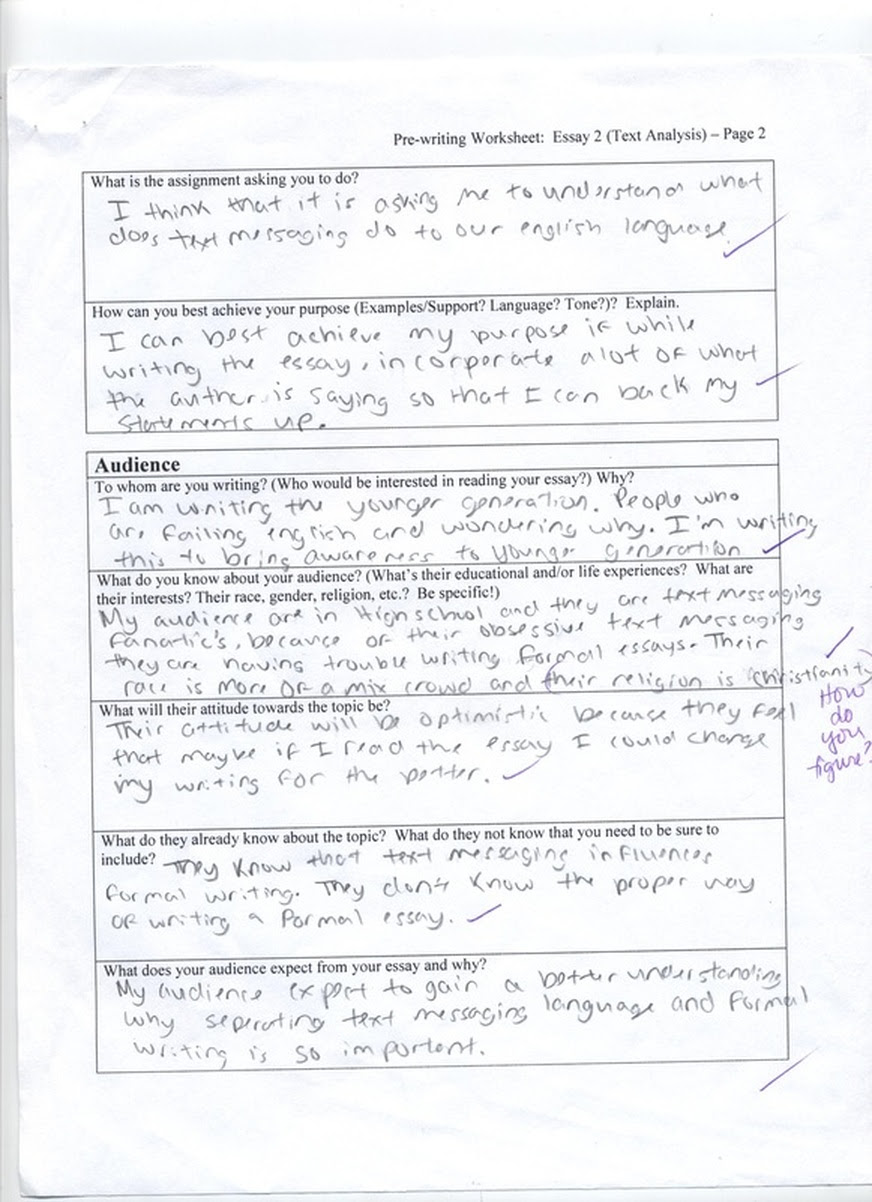 Pre-writing Worksheet: Essay 2 (Text Analysis) – Page 2
What is the assignment asking you to do?
I think that it is asking me to understand what
does text messaging do to our english language.
How can you best achieve your purpose (Examples/Support? Language? Tone?)? Explain.
I can best achieve my purpose if while
writing the essay, incorporate alot of what
the auther is saying so that I can back my
statements up.
Audience
To whom are you writing? (Who would be interested in reading your essay?) Why?
I am writing the younger generation. People who
are failing english and wondering why. I'm writing
this to bring awareness to younger generation
What do you know about your audience? (What's their educational and/or life experiences? What are
their interests? Their race, gender, religion, etc.? Be specific!)
My audience are in High school and they are text messaging
fanatic's, because of their obsessive text messaging
they are having trouble writing formal essays. Their
race is more of a mix crowd and their religion is Christianity
How
do
you
figure?
What will their attitude towards the topic be?
Their attitude will be optimistic because they feel
that maybe if I read the essay I could change
my writing for the better.
What do they already know about the topic? What do they not know that you need to be sure to
include? They know that text messaging influences
formal writing. They don't know the proper way
of writing a formal essay.
What does your audience expect from your essay and why?
My audience expect to gain a better understanding
why seperating text messaging language and formal
writing is so important.